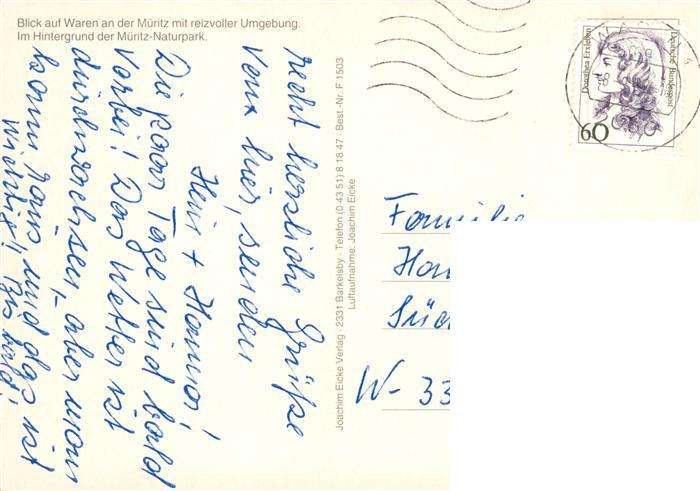 Blick auf Waren an der Müritz mit reizvoller Umgebung.
Im Hintergrund der Müritz-Naturpark.
recht herzliche Grüße
von hier, senden
Hein + Hanna!
Die paar Tage sind bald
vorbei! Das Wetter ist
durchwachsen, aber man
kann raus und das ist
wichtig! Bis bald!
Joachim Eicke Verlag · 2331 Barkelsby · Telefon (0 43 51) 8 18 47 · Best.-Nr. F 1503
Luftaufnahme: Joachim Eicke
Dorothea Erxleben
Deutsche Bundespost
60
Familie
W- 33